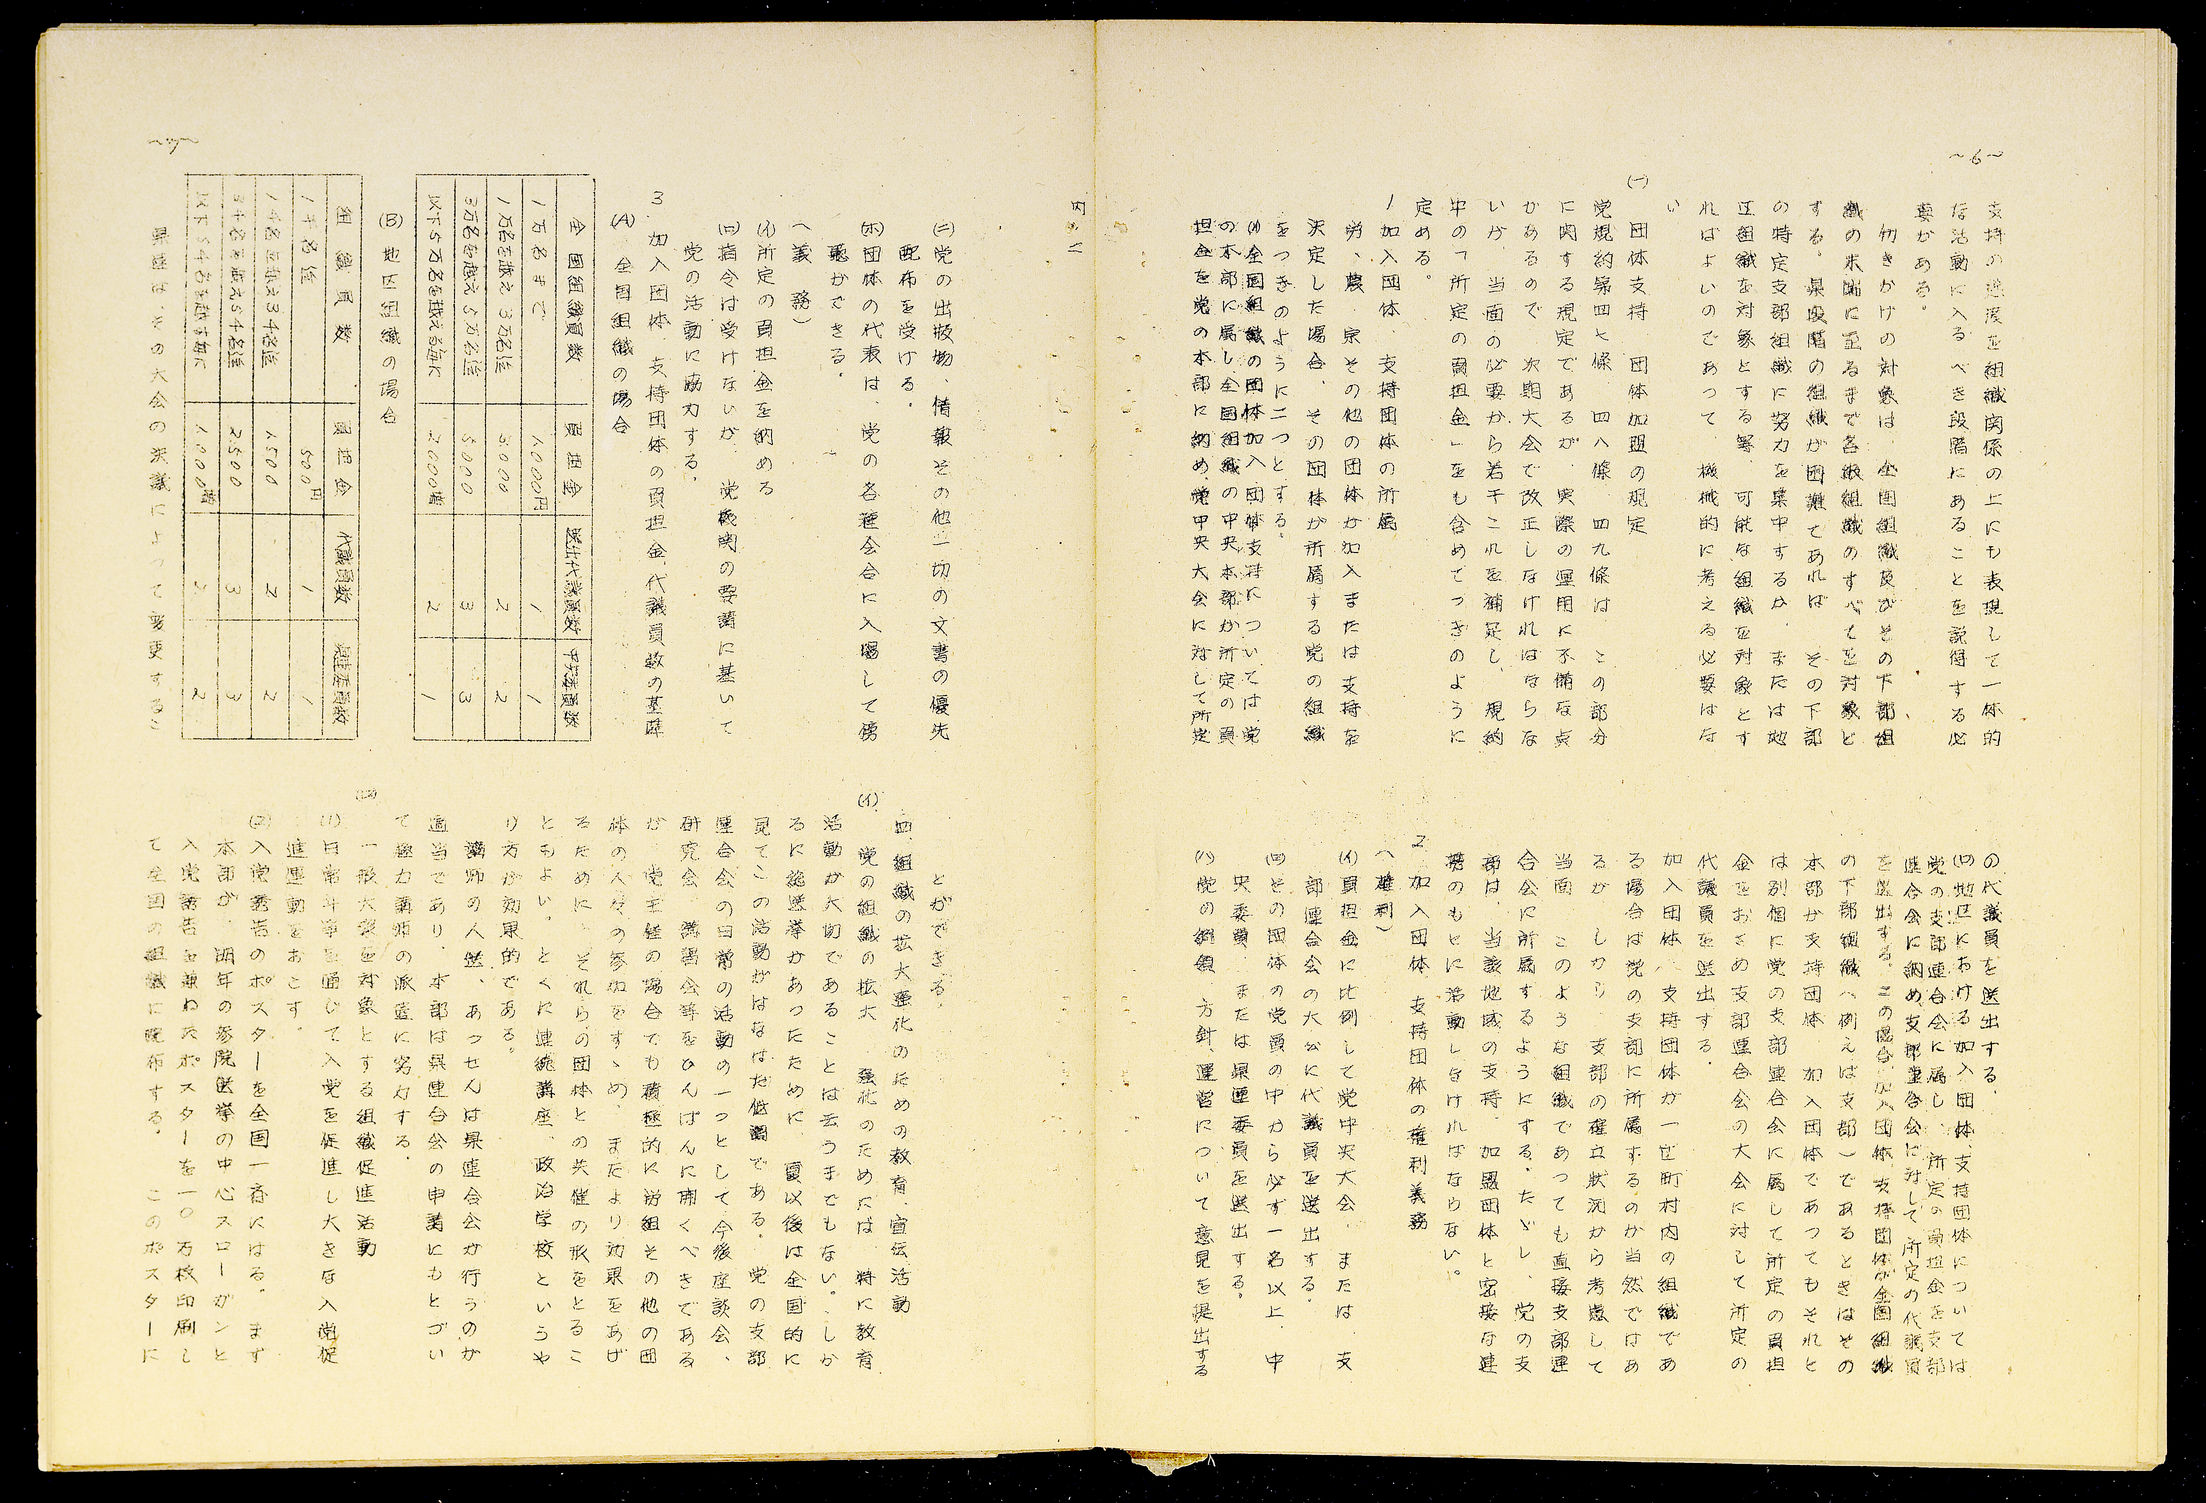 ~6~
支持の進度を組織関係の上にも表現して一体的
な活動に入るべき段階にあることを説得する必
要がある。
働きかけの対象は、全国組織及びその下部組
織の末端に至るまで各級組織のすべてを対象と
する。県段階の組織が困難であれば その下部
の特定支部組織に努力を集中するか、または地
区組織を対象とする等 可能な組織を対象とす
ればよいのであつて、機械的に考える必要はな
い
(一) 団体支持 団体加盟の規定
党規約第四七條 四八條 四九條は この部分
に関する規定であるが、実際の運用に不備な点
があるので 次期大会で改正しなければならな
いが、当面の必要から若干これを補足し、規約
中の「所定の負担金」をも含めてつぎのように
定める。
1 加入団体 支持団体の所属
労、農、 その他の団体が加入または支持を
決定した場合、その団体が所属する党の組織
をつぎのように二つとする。
(イ)全国組織の団体加入、団体支持については党
の本部に属し、全国組織の中央本部が所定の負
担金を党の本部に納め、党中央大会に対して所定
の代議員を送出する。
(ロ)地区における加入団体、支持団体については
党の支部連合会に属し、所定の負担金を支部
連合会に納め、支部連合会に対して所定の代議員
を選出する。この場合、加入団体、支持団体が全国組織
の下部組織(例えば支部)であるときはその
本部が支持団体、加入団体であつてもそれと
は別個に党の支部連合会に属して所定の負担
金をおさめ支部連合会の大会に対して所定の
代議員を送出する。
加入団体、支持団体が一区町村内の組織であ
る場合は党の支部に所属するのが当然ではあ
るが しかし 支部の確立状況から考慮して
当面 このような組織であつても直接支部連
合会に所属するようにする。たゞし、党の支
部は、当該地域の支持、加盟団体と密接な連
携のもとに活動しなければならない。
2 加入団体、支持団体の権利義務
(権利)
(イ)負担金に比例して党中央大会、または 支
部連合会の大会に代議員を送出する。
(ロ)その団体の党員の中から必ず一名以上、中
央委員、または県連委員を選出する。
(ハ)党の綱領、方針、運営について意見を提出する
~7~
(ニ)党の出版物、情報その他一切の文書の優先
配布を受ける。
(ホ)団体の代表は、党の各種会合に入場して傍
聴ができる。
(義 務)
(イ)所定の負担金を納める
(ロ)指令は受けないが 党機関の要請に基いて
党の活動に協力する。
3 加入団体、支持団体の負担金、代議員数の基準
(A) 全国組織の場合
全国組織員数 負担金 送出代議員数 中央委員数
1万名まで 1,000円 1 1
1万名を越え3万名迄 3,000 2 2
3万名を越え5万名迄 5,000 3 3
以下5万名を越える毎に 2,000増 2 1
(B) 地区組織の場合
組織員数 負担金 代議員数 県連委員数
1千名迄 500円 1 1
1千名を越え3千名迄 1,500 2 2
3千名を越え5千名迄 2,500 3 3
以下5千名を越す毎に 1,000増 2 2
県連はその大会の決議によつて変更するこ
とができる。
四、組織の拡大強化のための教育、宣伝活動
(イ) 党の組織の拡大 強化のためには 特に教育
活動が大切であることは云うまでもない。しか
るに総選挙があつたために 夏以後は全国的に
見てこの活動がはなはだ低調である。党の支部
連合会の日常の活動の一つとして今後座談会、
研究会 講習会等をひんぱんに開くべきである
が 党主催の場合でも積極的に労組その他の団
体の人々の参加をすゝめ、またより効果をあげ
るために それらの団体との共催の形をとるこ
ともよい。とくに連続講座、政治学校というや
り方が効果的である。
講師の人選、あつせんは県連合会が行うのが
適当であり、本部は県連合会の申請にもとづい
て極力講師の派遣に努力する。
(ロ) 一般大衆を対象とする組織促進活動
(1)日常斗争を通じて入党を促進し大きな入党促
進運動をおこす。
(2)入党勧告のポスターを全国一斉にはる。まず
本部が、明年の参院選挙の中心スローガンと
入党勧告を兼ねたポスターを一〇万枚印刷し
て全国の組織に配布する。 このポスターに